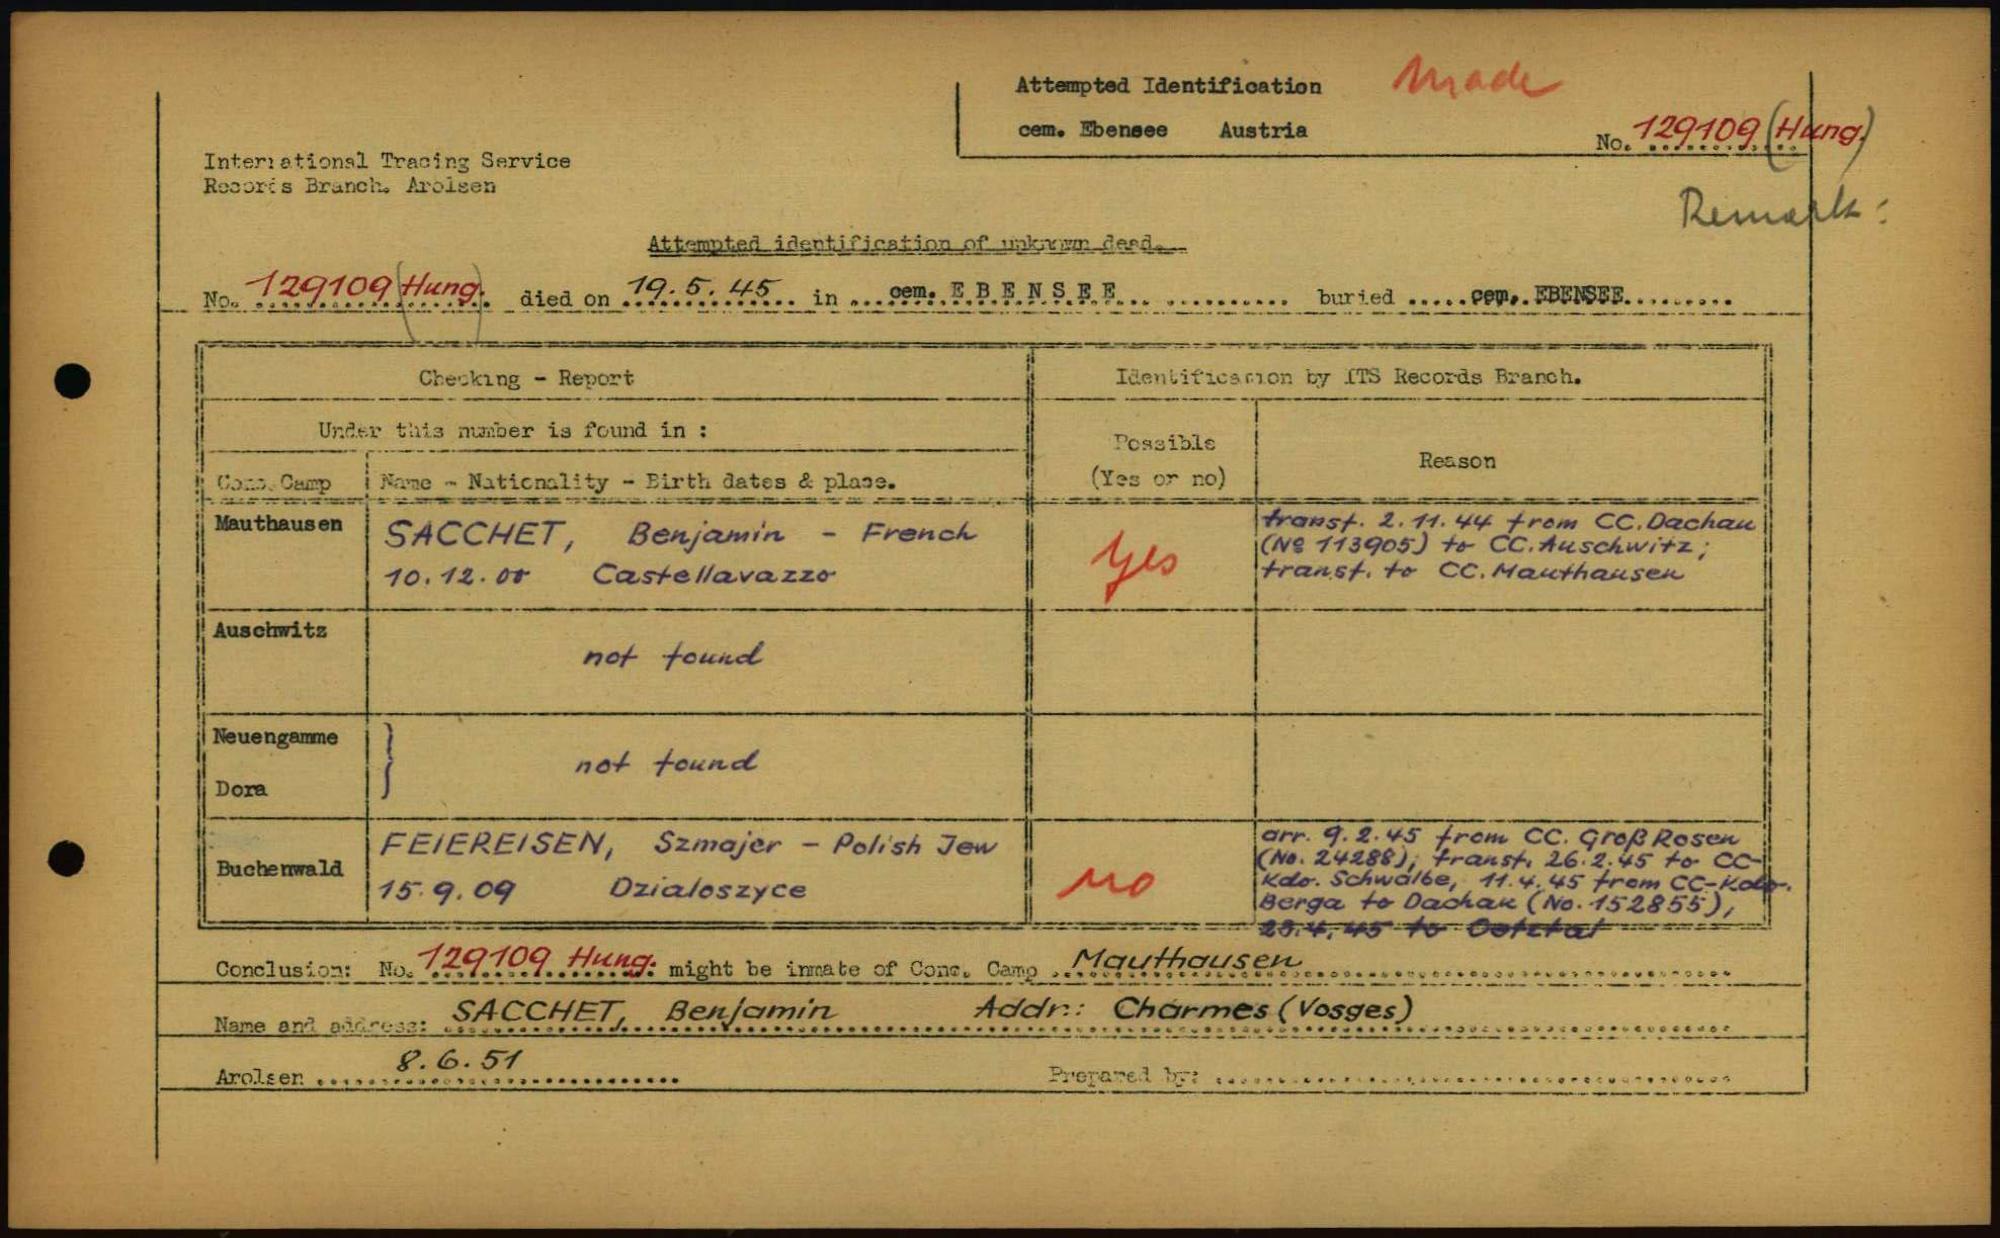 Attempted Identification Made
cem. Ebensee Austria
No. 129109 (Hung.)
International Tracing Service
Records Branch. Arolsen
Remark:
Attempted identification of unknown dead.
No. 129109 (Hung.) died on 19.5.45 in cem. EBENSEE buried cem. EBENSEE
Checking - Report
Identification by ITS Records Branch.
Under this number is found in :
Possible
(Yes or no)
Reason
Conc. Camp
Name - Nationality - Birth dates & place.
Mauthausen
SACCHET, Benjamin - French
10.12.00 Castellavazzo
Yes
transf. 2.11.44 from CC. Dachau
(No 113905) to CC. Auschwitz;
transf. to CC. Mauthausen
Auschwitz
not found
Neuengamme
Dora
} not found
Buchenwald
FEIEREISEN, Szmajer - Polish Jew
15.9.09 Dzialoszyce
no
arr. 9.2.45 from CC. Groß Rosen
(No. 24288); transf. 26.2.45 to CC-
Kdo. Schwalbe, 11.4.45 from CC-Kdo.
Berga to Dachau (No. 152855),
23.4.45 to Oetztal
Conclusion: No. 129109 Hung. might be inmate of Conc. Camp Mauthausen
Name and address: SACCHET, Benjamin Addr.: Charmes (Vosges)
Arolsen 8.6.51
Prepared by: